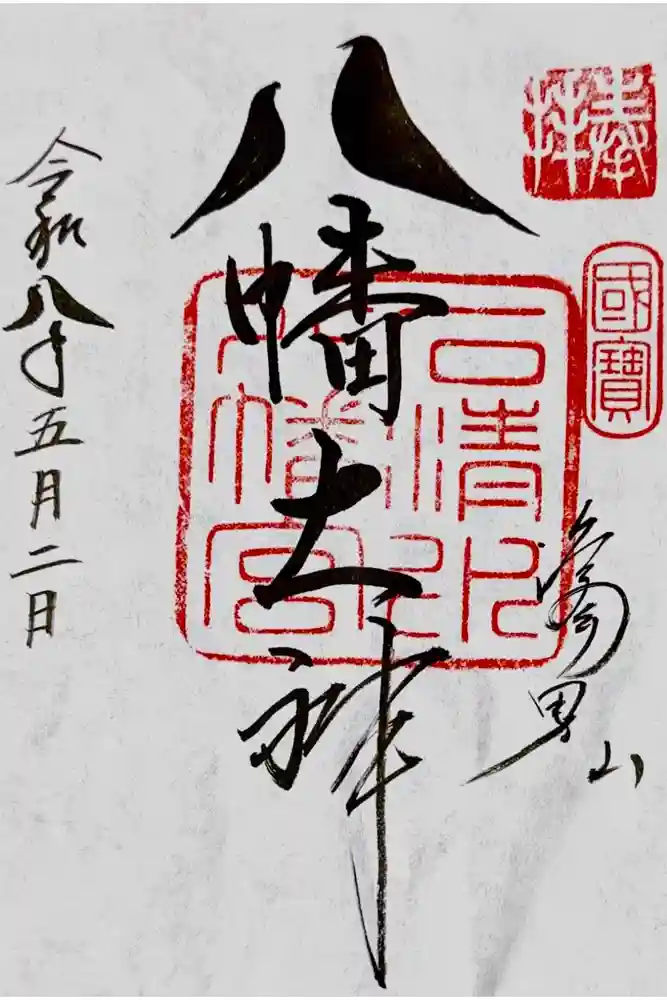 奉拝
國寶
男山
石清水
八幡宮
八幡大神
令和八年五月二日